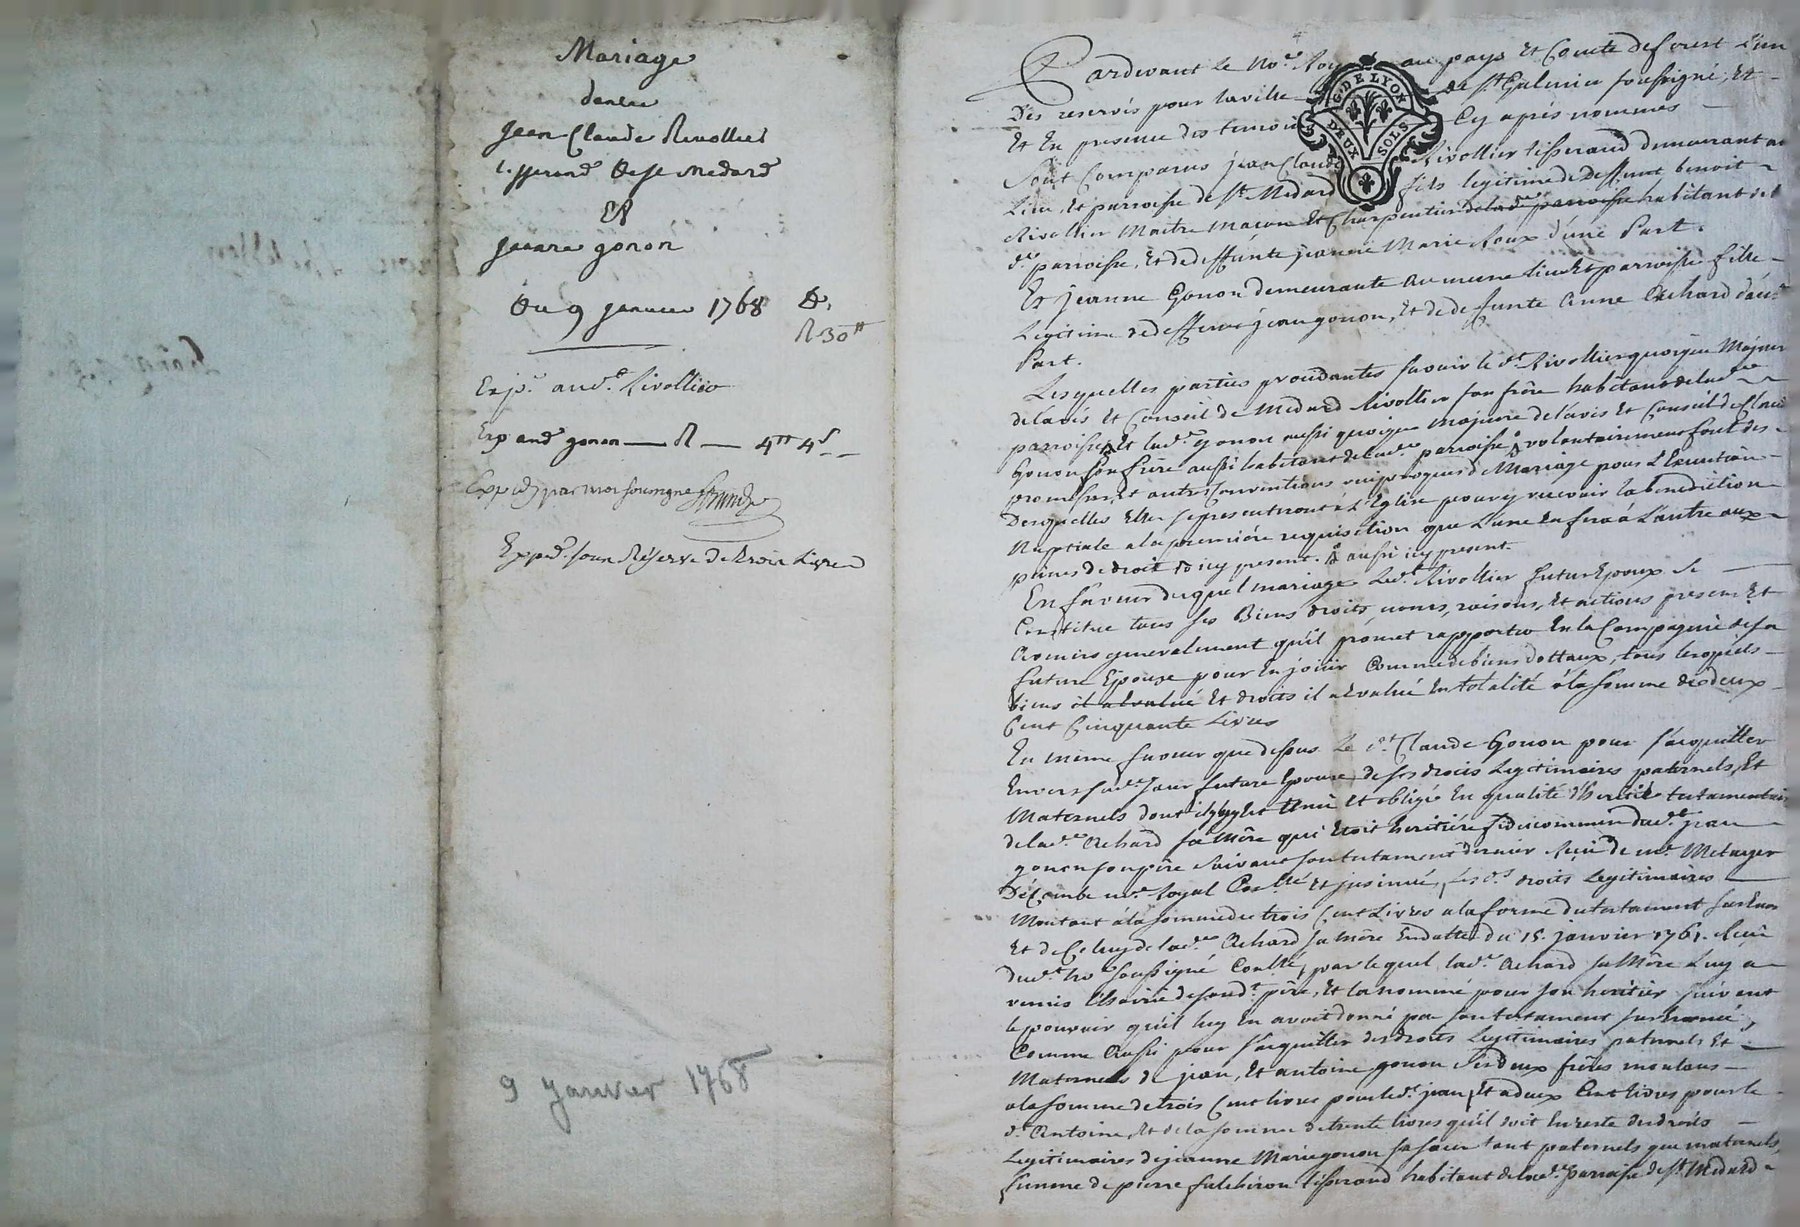 Mariage
dentre
jean Claude Rivollier
tisserand de st Medard
Et
jeanne gonon
Du 9 janvier 1768
R 30#
Exp. aud. Rivollier
Exp aud gonon — R — 4# 4s
Exped par moi soussigné
Exped. sous Réserve de trois Livres
9 janvier 1768
Pardevant le No.re Roy au pays et Comté de forest L'un
Des reservés pour la ville de St Galmier soussigné, Et
Et En presence des temoins Cy après nommés
Sont Comparus jean Claude Rivollier tisserand demeurant au
Lieu, et parroisse de St Medard fils legitime de deffunt benoit
Rivollier Maitre macon et Charpentier de lad.e parroisse habitant de la
d.e parroisse, et de deffunte jeanne Marie Roux d'une Part.
Et jeanne Gonon demeurante au meme Lieu et parroisse fille
Legitime de deffunt jean gonon, et de deffunte anne Achard d'autre
Part.
Lesquelles parties procedantes savoir le d.t Rivollier quoique Majeur
de l'avis et Conseil de Medard Rivollier son frère habitant de lad.e
parroisse, et lad.e gonon aussi quoique majeure de l'avis et Conseil de Claude
Gonon son frère aussi habitant de lad.e parroisse volontairement font des
promesses, et autres Conventions reciproques de Mariage pour L'Execution
Desquelles Elles se presenteront à L'Eglise pour y recevoir la benediction
Nuptiale a la premiére requisition que L'une en fera à L'autre aux
peines de droit icy present. aussi icy present.
En faveur duquel mariage Led.t Rivollier futur Epoux Se
Constitue tous ses Biens droits, noms, raisons, et actions presens Et
avenirs generalement qu'il promet rapporter En la Compagnie de sa
future Epouse pour En jouir Comme de biens dottaux, tous lesquels
biens il a evalué Et droits il a evalué En totalité à la somme de deux
Cent Cinquante Livres
En meme faveur que dessus Le d.t Claude Gonon pour s'acquitter
Envers sad.e Sœur future Epouse de ses droits Legitimaires paternels, Et
Maternels dont il est tenu et obligé En qualité d'heritier testamentaire
de lad.e Achard sa Mére qui Etoit heritiére fideicommis dud.t jean
gonon son pére suivant son testament dernier Reçu de me Metayer
Descombe no.re Royal Conllé et insinué, Les d.s droits Legitimaires
Montant à la somme de trois Cent Livres a la forme du testament susenoncé
Et de Celuy de lad.e Achard sa Mére En datte du 15. janvier 1761. Reçu
dud.t no.re soussigné Conllé, par lequel lad.e Achard sa Mére Luy a
remis L'hoirie de sond.t pére, Et la nommé pour son heritier suivant
le pouvoir qu'il luy En avoit donné par son testament susenoncé,
Comme Aussi pour s'acquitter des droits Legitimaires paternels Et
Maternels de jean, Et antoine gonon Ses deux fréres montans
a la somme de trois Cent livres pour led.t jean, Et a deux Cent livres pour le
d.t Antoine, et de la somme de trente livres qu'il doit En reste des droits
Legitimaires de jeanne Marie gonon sa sœur tant paternels que maternels,
femme de pierre fulchiron tisserand habitant de lad.e parroisse de St Medard